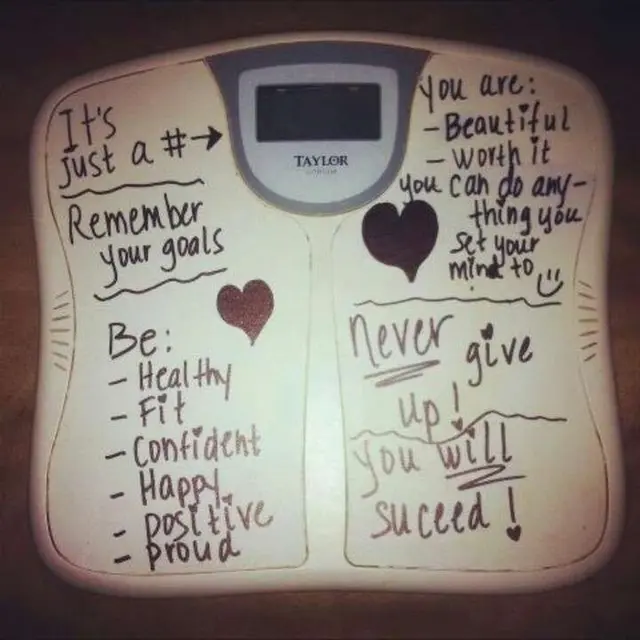 It's
just a #→
Remember
your goals
Be:
- Healthy
- Fit
- Confident
- Happy
- positive
- proud
TAYLOR
You are:
- Beautiful
- worth it
you can do any-
thing you
set your
mind to
never give
up!
you will
suceed!